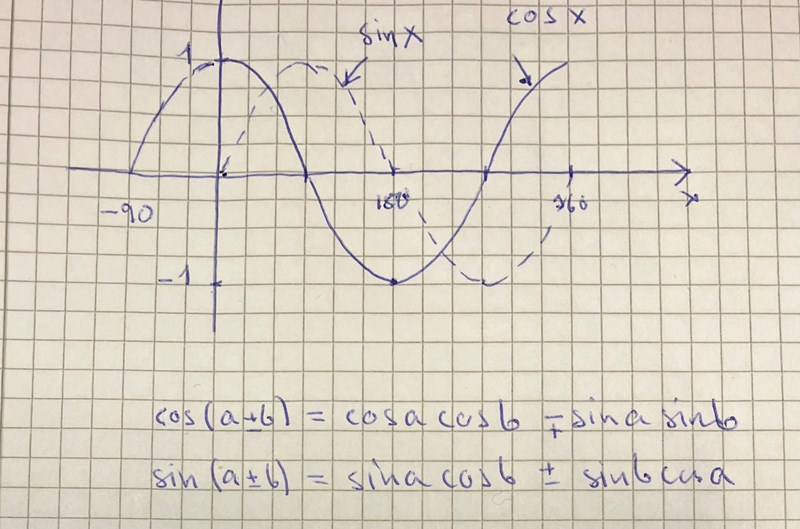 cos x
sin x
1
-90
180
360
x
-1
cos(a±b) = cosa cosb ∓ sina sinb
sin(a±b) = sina cosb ± sinb cosa